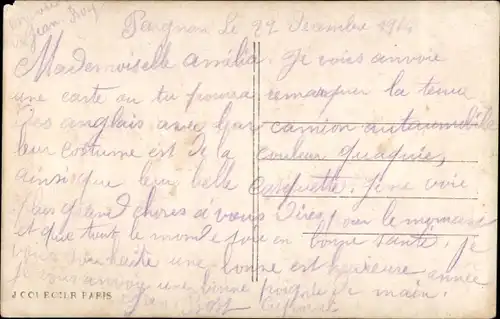 Jean Bost
Pargnan Le 22 Decembre 191
Mademoiselle amélia. Je vous anvoie
une carte ou tu poura remarquer la tenu
des anglais avec leur camion automobile
leur costume est de la couleur quaquies
ainsisque leur belle casquette. Je ne voie
pas grand choses à vous dires pour le moment
et que tout le monde soie en bonne santé. je
vous souhaite une bonne est heureuse année
je vous anvoy une bonne poignée de main.
Jean Bost
J. COURCIER PARIS